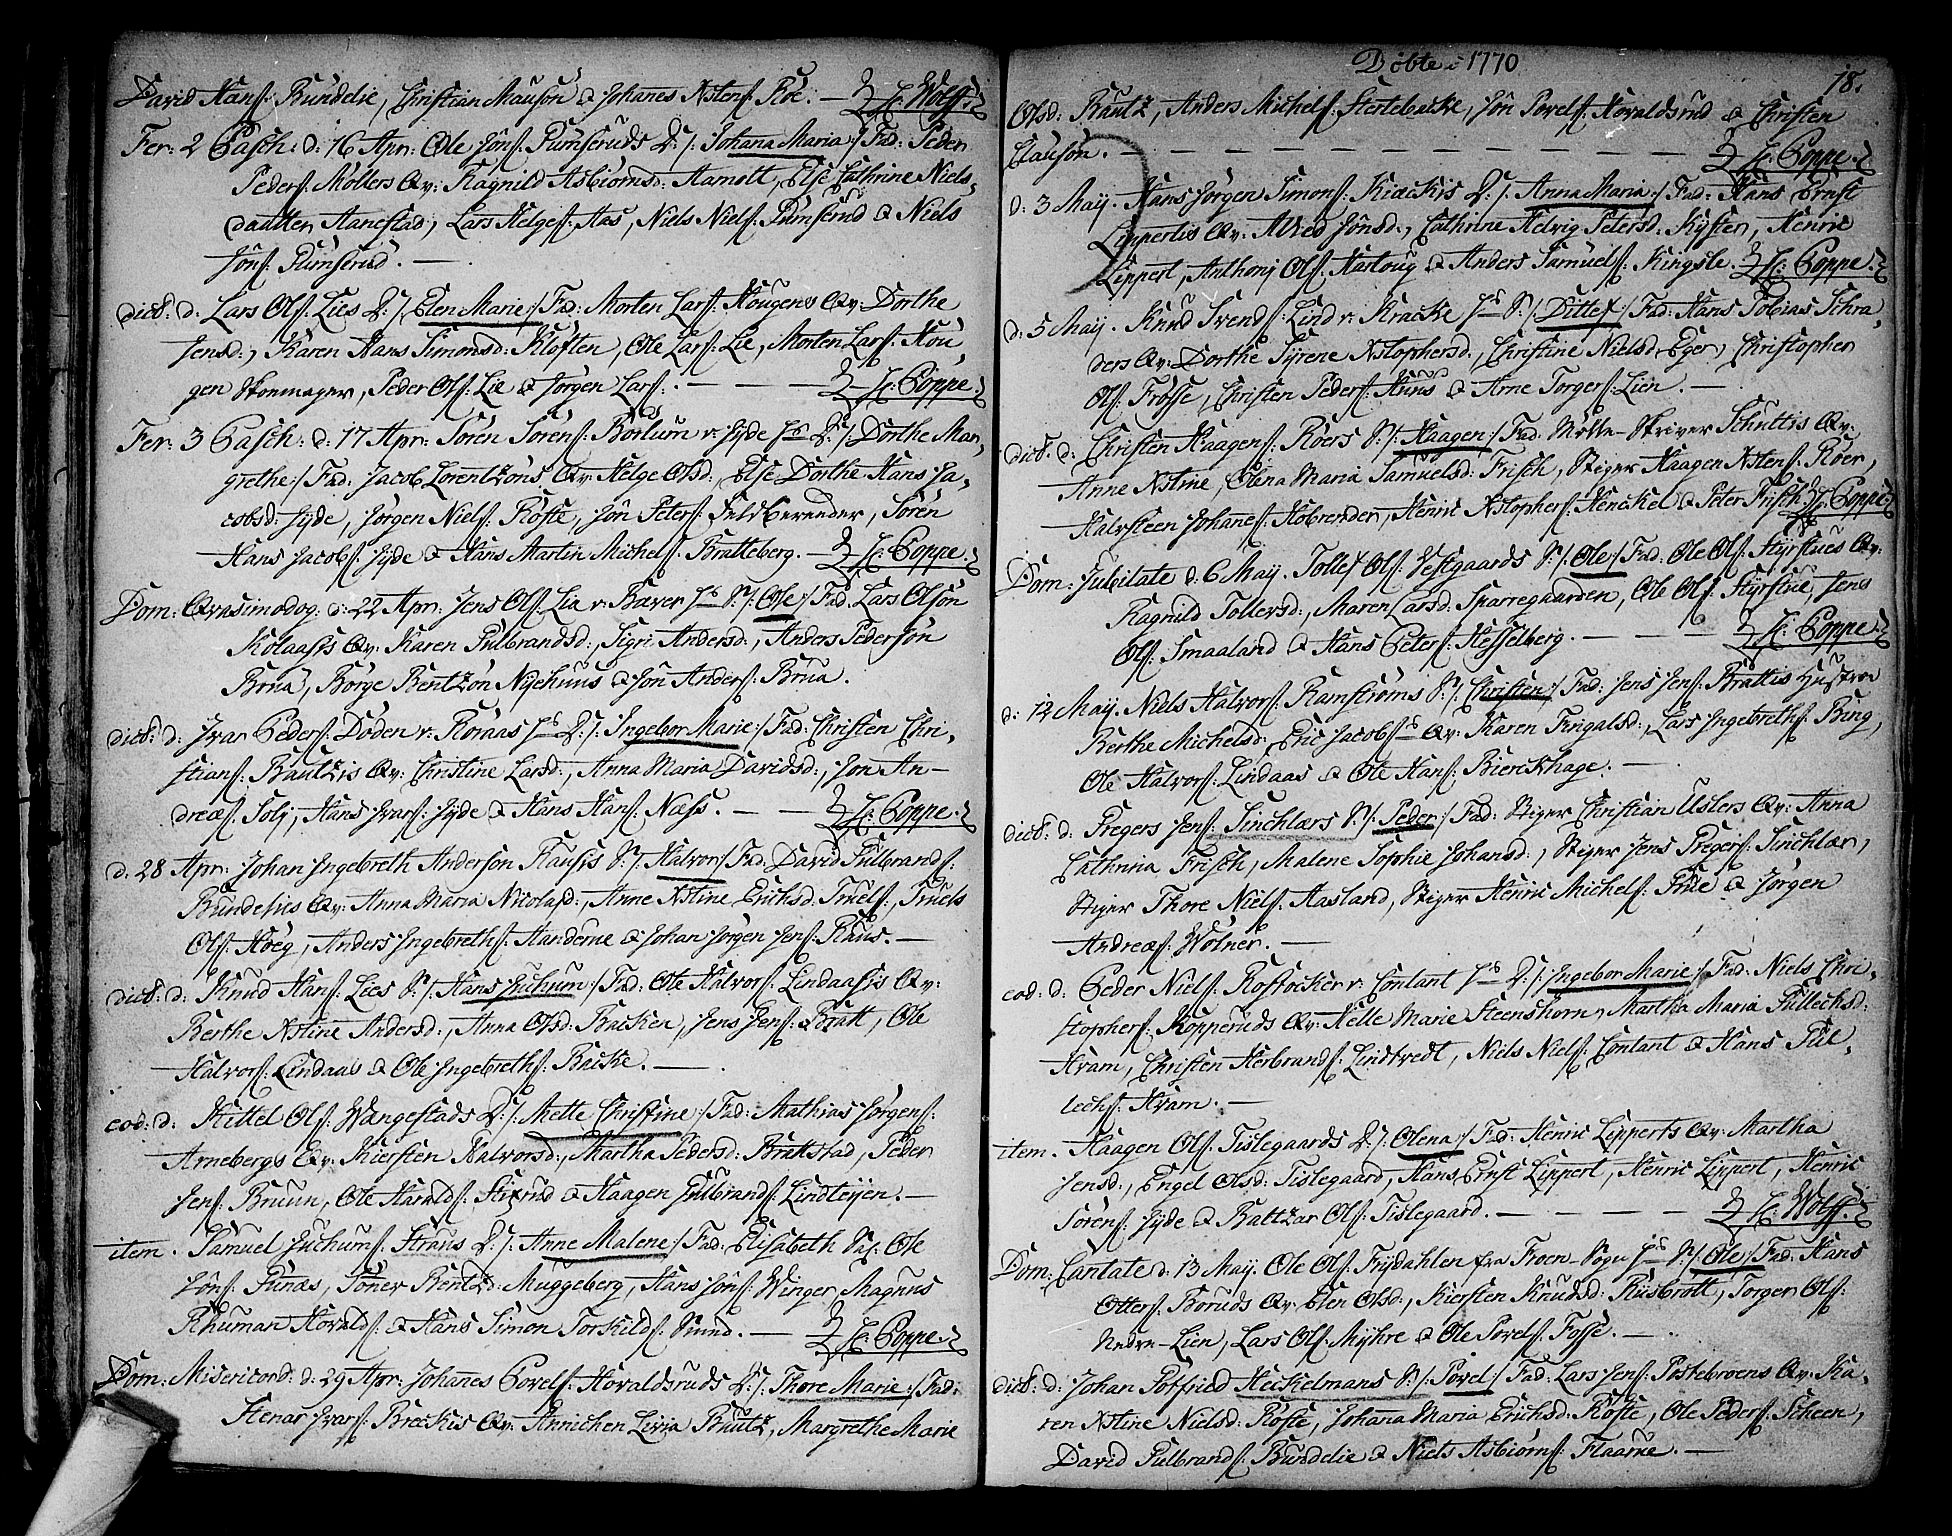 David Hans: Bundelie, Christian Mausøn & Johanes Xstens: Roe. — H: Wolff.
Fer: 2 Pasch: d: 16 Apr: Ole Jøns: Rumseruds D: /: Johana Maria :/ Fad: Peder
Peders: Møllers Qv: Ragnild Asbiørnsd: Aamott, Else Cathrine Niels-
daatter Aanestad, Lars Helges: Aas, Niels Niels: Rumserud & Niels
Jøns: Rumserud. —
dict: d: Lars Ols: Lies D: /: Elen Marie :/ Fad: Morten Lars: Hougens Qv: Dorthe
Jensd:, Karen Hans Simonsd: Kloften, Ole Lars: Lie, Morten Lars: Hou,
gen Skomager, Peder Ols: Lie & Jørgen Lars: — — — H: Poppe.
Fer: 3 Pasch: d: 17 Apr: Søren Sørens: Borlum v: Jyde H: D: /: Dorthe Mar,
grethe :/ Fad: Jacob Lorentzøns Qv: Helge Olsd:, Else Dorthe Hans Ja,
cobsd: Jyde, Jørgen Niels: Røste, Jøn Peters: Fuldberender, Søren
Hans Jacobs: Jyde & Hans Martin Michels: Bratteberg. — H: Poppe.
Dom: Qvasimodog: d: 22 Apr: Jens Ols: Lia v: Bæver H: S: /: Ole :/ Fad: Lars Olsøn
Kolaasis Qv: Karen Gulbrandsd:, Sigri Andersd:, Anders Pedersøn
Brua, Børge Bentzøn Nyehuus & Jøn Anders: Brua.
dict: d: Ivar Peders: Døden v: Røraas H: D: /: Ingebor Marie :/ Fad: Christen Chri,
stians: Bautzis Qv: Christine Larsd:, Anna Maria Davidsd:, Jon An-
dreæs: Solj, Hans Ivars: Jyde & Hans Hans: Næss. — — H: Poppe.
d: 28 Apr: Johan Ingebreth Andersøn Rausis S: /: Halvor :/ Fad: David Gulbrands:
Bundelies Qv: Anna Maria Nicolasd:, Anne Xstine Erichsd: Truels:, Truels
Ols: Hoeg, Anders Ingebreths: Aanderne & Johan Jørgen Jens: Raus. —
dict: d: Knud Hans: Lies S: /: Hans Juchum :/ Fad: Ole Halvors: Lindaasis Qv:
Berthe Xstine Andersd:, Anna Olsd: Backen, Jens Jens: Bratt, Ole
Halvors: Lindaas & Ole Ingebreths: Backe. —
eod: d: Kittel Ols: Wangestads D: /: Mette Christine :/ Fad: Mathias Jørgens:
Arnebergs Qv: Kiersten Halvorsd:, Martha Pedersd: Brattstad, Peder
Jens: Bruun, Ole Haralds: & Haagen Gulbrands: Lindteijen. —
item. Samuel Juchums: Straus D: /: Anne Malene :/ Fad: Elisabeth Sal: Ole
Jøns: Funæs, Tøner Bentzd: Muggeberg, Hans Jøns: Winger, Magnus
Rhuman Hovalds: & Hans Simon Torkilds: Sund. — H: Poppe.
Dom: Misericord: d: 29 Apr: Johanes Povels: Hovaldsruds D: /: Thore Marie :/ Fad:
Stenar Ivars: Breckis Qv: Annichen Bautz, Margrethe Marie
Døbte i 1770
18.
Olsd: Bautz, Anders Michels: Stertebacke, Jøn Povels: Hovaldsrud & Christen
Clausøn. — — — — — — — — — H: Poppe.
d: 3 May. Hans Jørgen Simons: Kiæckis D: /: Anna Maria :/ Fad: Hans Ernst
Lippertis Qv: Alhed Jønsd:, Cathrine Helvig Petersd: Kyster, Henric
Lippert, Anthonj Ols: Hartoug & Anders Samuels: Kingsle. H: Poppe.
d: 5 May. Knud Svends: Lind v: Kracke H: S: /: Ditlef :/ Fad: Hans Tobias Schra,
ders Qv: Dorthe Syrene Xstophersd:, Christine Nielsd: Eger, Christopher
Ols: Frosse, Christen Peders: Huus & Arne Torgers: Lien. —
dict: d: Christen Haagens: Roers S: /: Haagen :/ Fad: Mølle-Skriver Schuttis Qv:
Anne Xstine, Olena Maria Samuelsd: Frisch, Stiger Haagen Xstens: Roer,
Halvsteen Johanes: Hobrenden, Henric Xstophers: Henckel & Peter Frisch. H: Poppe.
Dom: Jubilate d: 6 May. Tollef Ols: Vestgaards S: /: Ole :/ Fad: Ole Ols: Styrstues Qv:
Ragnild Tollefsd:, Maren Larsd: Sparregaarden, Ole Ols: Styrstue, Jens
Ols: Smaaland & Hans Peters: Hesselberg. — — — H: Poppe.
d: 12 May. Niels Halvors: Ramstrøms S: /: Christen :/ Fad: Jens Jens: Brattis Hustroe
Berthe Michelsd:, Eric Jacobs: Qv: Karen Fingalsd:, Lars Ingebreths: Bing,
Ole Halvors: Lindaas & Ole Hans: Bierckhage. —
dict: d: Pregers Jens: Sinchlærs S: /: Peder :/ Fad: Stiger Christian Uslers Qv: Anna
Cathrina Frisch, Malene Sophie Johansd:, Stiger Jens Pregers: Sinchlær,
Stiger Thore Niels: Aasland, Stiger Henric Michels: Friie & Jørgen
Andreæs: Wølner. —
eod: d: Peder Niels: Rostocker v: Contant H: D: /: Ingebor Marie :/ Fad: Niels Chri,
stophers: Kopperuds Qv: Helle Marie Steenshorn, Martha Maria Gullechsd:
Hvam, Christen Herbrands: Lindtvedt, Niels Niels: Contant & Hans Gul,
lechs: Hvam. —
item. Haagen Ols: Tislegaards D: /: Olena :/ Fad: Henric Lipperts Qv: Martha
Jensd:, Engel Olsd: Tislegaard, Hans Ernst Lippert, Henric Lippert, Henric
Sørens: Jyde & Baltzar Ols: Tislegaard. — — — — H: Wolff.
Dom: Cantate d: 13 May. Ole Ols: Frydahlen fra Froen-Sogn H: S: /: Ole :/ Fad: Hans
Otters: Boruds Qv: Elen Olsd:, Kiersten Knudsd: Riisbrott, Torger Ols:
Nedre-Lien, Lars Ols: Myhre & Ole Povels: Fosse. —
dict: d: Johan Gotfried Heckelmans S: /: Povel :/ Fad: Lars Jens: Postebroens Qv: Ka,
ren Xstine Nielsd: Røste, Johana Maria Erichsd: Røste, Ole Peders: Scheen,
David Gulbrands: Bundelie & Niels Asbiørns: Flaarne. —